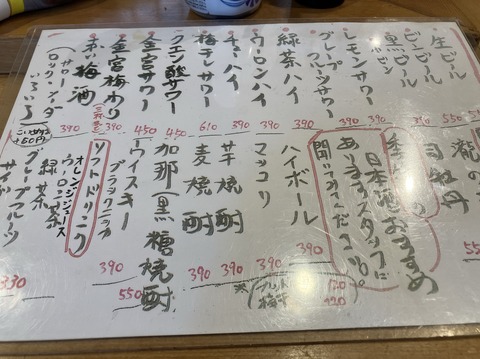 生ビール
ビンビール 550
黒ビール 310
レモンサワー 390
グレープフルーツサワー
緑茶ハイ 390
ウーロンハイ 390
チューハイ 390
梅干しサワー 610
クエン酸サワー 450
金宮サワー 450
金宮梅わり 390
赤い梅酒 390
(サワー・ソーダー
ロック・
いろいろ)
こいめは
+60円
瀧の
司牡丹
日本酒おすすめ
ありますスタッフに
聞いてみてください。
ハイボール 390
マッコリ 390
芋焼酎 390
麦焼酎 390
加那(黒糖焼酎)
ウイスキー
ブラックニッカ 390
550
ソフトドリンク 390
オレンジジュース
ウーロン茶
緑茶
グレープフルーツ
サイダー 330